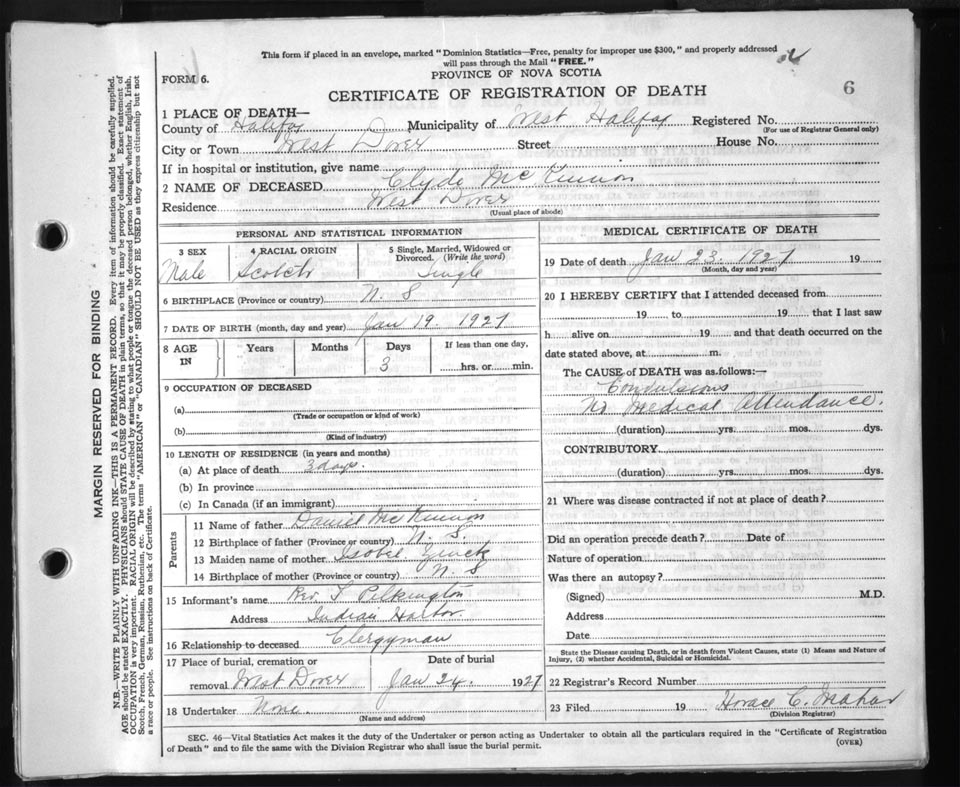 This form if placed in an envelope, marked "Dominion Statistics—Free, penalty for improper use $300," and properly addressed
will pass through the Mail "FREE."
FORM 6.
PROVINCE OF NOVA SCOTIA
6
CERTIFICATE OF REGISTRATION OF DEATH
1 PLACE OF DEATH—
County of Halifax Municipality of West Halifax Registered No.
(For use of Registrar General only)
City or Town West Dover Street House No.
If in hospital or institution, give name
2 NAME OF DECEASED Clyde McKinnon
Residence West Dover
(Usual place of abode)
PERSONAL AND STATISTICAL INFORMATION
3 SEX 4 RACIAL ORIGIN 5 Single, Married, Widowed or
Divorced. (Write the word)
Male Scotch Single
6 BIRTHPLACE (Province or country) N. S
7 DATE OF BIRTH (month, day and year) Jan 19. 1927
8 AGE IN Years Months Days If less than one day,
3 hrs. or min.
9 OCCUPATION OF DECEASED
(a)
(Trade or occupation or kind of work)
(b)
(Kind of industry)
10 LENGTH OF RESIDENCE (in years and months)
(a) At place of death 3 days.
(b) In province
(c) In Canada (if an immigrant)
Parents
11 Name of father Daniel McKinnon
12 Birthplace of father (Province or country) N. S.
13 Maiden name of mother Isobel Zinck
14 Birthplace of mother (Province or country) N. S
15 Informant's name Rev T Pilkington
Address Indian Harbor
16 Relationship to deceased Clergyman
17 Place of burial, cremation or Date of burial
removal West Dover Jan 24. 1927
18 Undertaker None.
(Name and address)
MEDICAL CERTIFICATE OF DEATH
19 Date of death Jan 23. 1927 19
(Month, day and year)
20 I HEREBY CERTIFY that I attended deceased from
19 to 19 that I last saw
h alive on 19 and that death occurred on the
date stated above, at m.
The CAUSE of DEATH was as follows:—
Convulsions
No Medical Attendance.
(duration) yrs. mos. dys.
CONTRIBUTORY
(duration) yrs. mos. dys.
21 Where was disease contracted if not at place of death?
Did an operation precede death? Date of
Nature of operation
Was there an autopsy?
(Signed) M.D.
Address
Date
State the Disease causing Death, or in death from Violent Causes, state (1) Means and Nature of
Injury, (2) whether Accidental, Suicidal or Homicidal.
22 Registrar's Record Number
23 Filed 19 Horace C.
(Division Registrar)
SEC. 46—Vital Statistics Act makes it the duty of the Undertaker or person acting as Undertaker to obtain all the particulars required in the "Certificate of Registration
of Death" and to file the same with the Division Registrar who shall issue the burial permit.
(OVER)
MARGIN RESERVED FOR BINDING
N.B.—WRITE PLAINLY WITH UNFADING INK—THIS IS A PERMANENT RECORD. Every item of information should be carefully supplied.
AGE should be stated EXACTLY. PHYSICIANS should STATE CAUSE OF DEATH in plain terms, so that it may be properly classified. Exact statement of
OCCUPATION is very important. RACIAL ORIGIN will be described by stating to what people or tongue the deceased person belonged, whether English, Irish,
Scotch, French, German, Russian, Ruthenian, etc. The terms "AMERICAN" or "CANADIAN" SHOULD NOT BE USED as they express citizenship but not
a race or people. See instructions on back of Certificate.